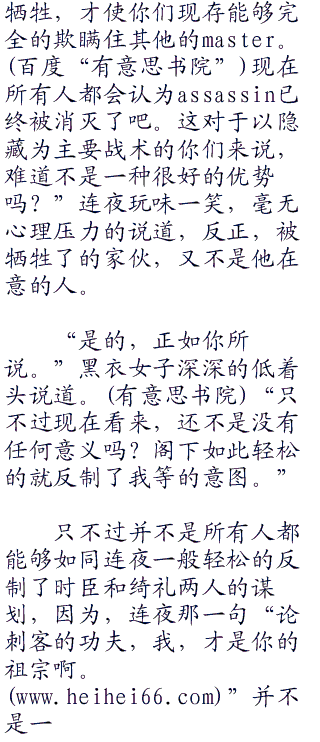 牺牲，才使你们现存能够完
全的欺瞒住其他的master。
(百度“有意思书院”)现在
所有人都会认为assassin已
终被消灭了吧。这对于以隐
藏为主要战术的你们来说，
难道不是一种很好的优势
吗？”连夜玩味一笑，毫无
心理压力的说道，反正，被
牺牲了的家伙，又不是他在
意的人。
“是的，正如你所
说。”黑衣女子深深的低着
头说道。(有意思书院)“只
不过现在看来，还不是没有
任何意义吗？阁下如此轻松
的就反制了我等的意图。”
只不过并不是所有人都
能够如同连夜一般轻松的反
制了时臣和绮礼两人的谋
划，因为，连夜那一句“论
刺客的功夫，我，才是你的
祖宗啊。
(www.heihei66.com)”并不
是一